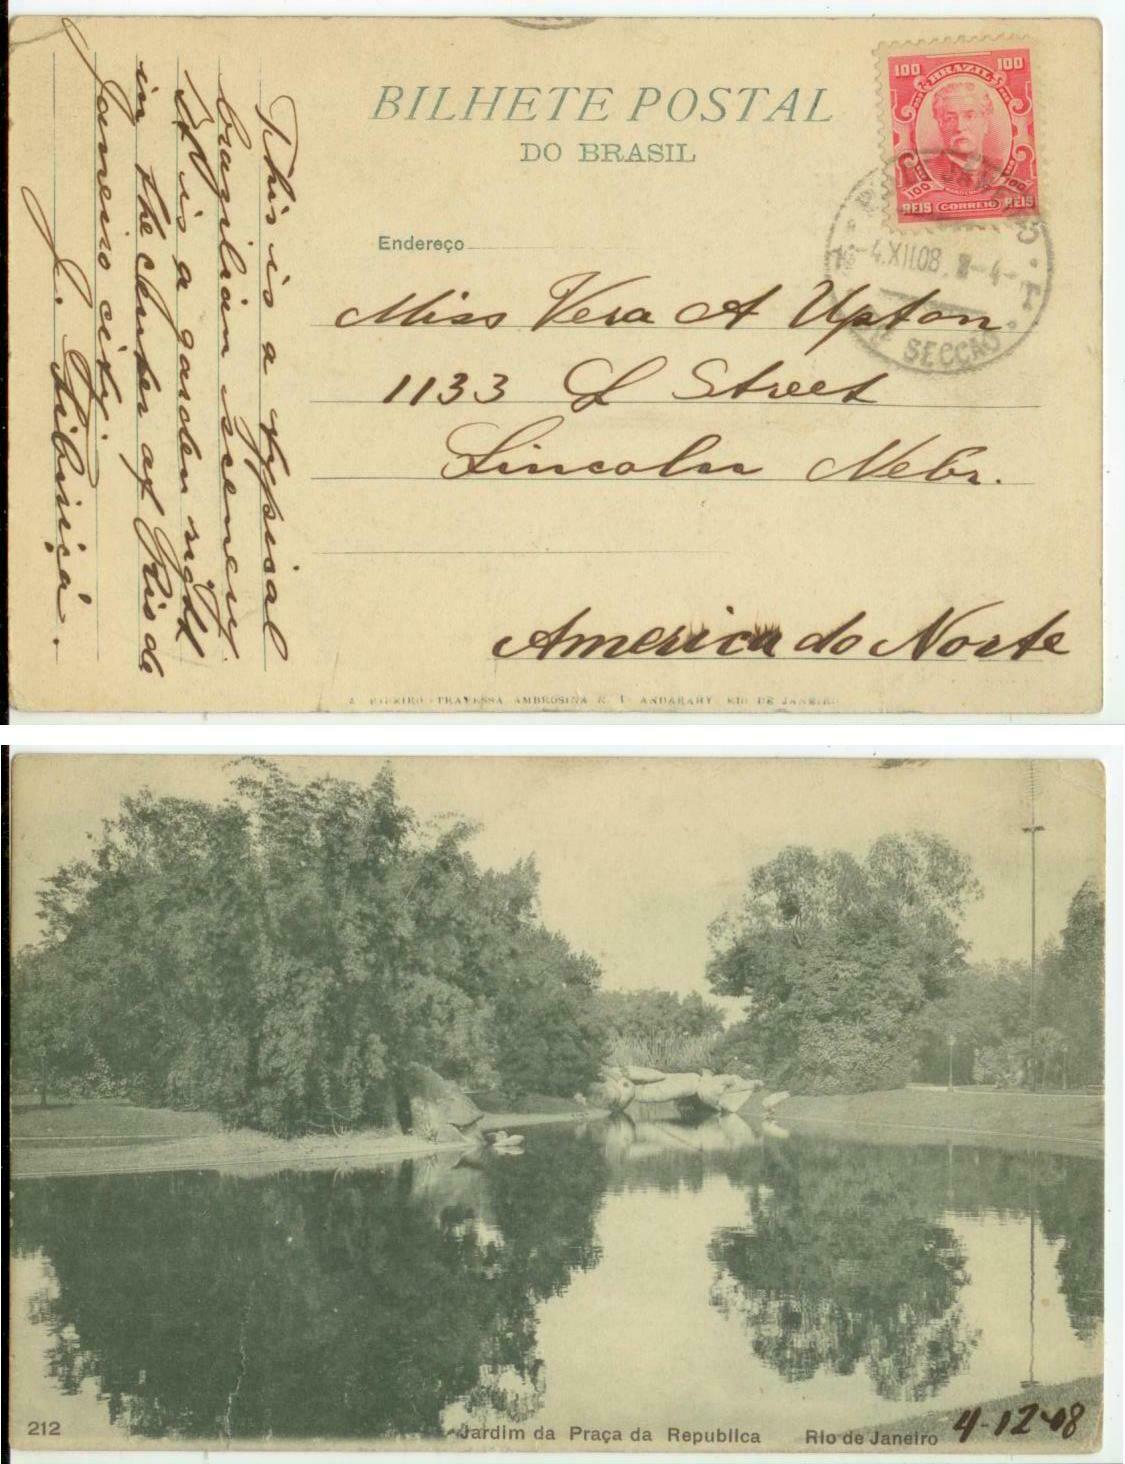 BILHETE POSTAL
DO BRASIL
100 BRAZIL 100
100 100
REIS CORREIO REIS
4.XII.08
SECCÃO
Endereço
Miss Vera A Upton
1133 L Street
Lincoln Nebr.
America do Norte
This is a typical
brazilian scenery.
It is a garden right
in the center of Rio de
Janeiro city.
J. Tibiriçá.
A. RIBEIRO TRAVESSA AMBROSINA N. 1 ANDARAHY RIO DE JANEIRO
212
Jardim da Praça da Republica
Rio de Janeiro
4-12-08